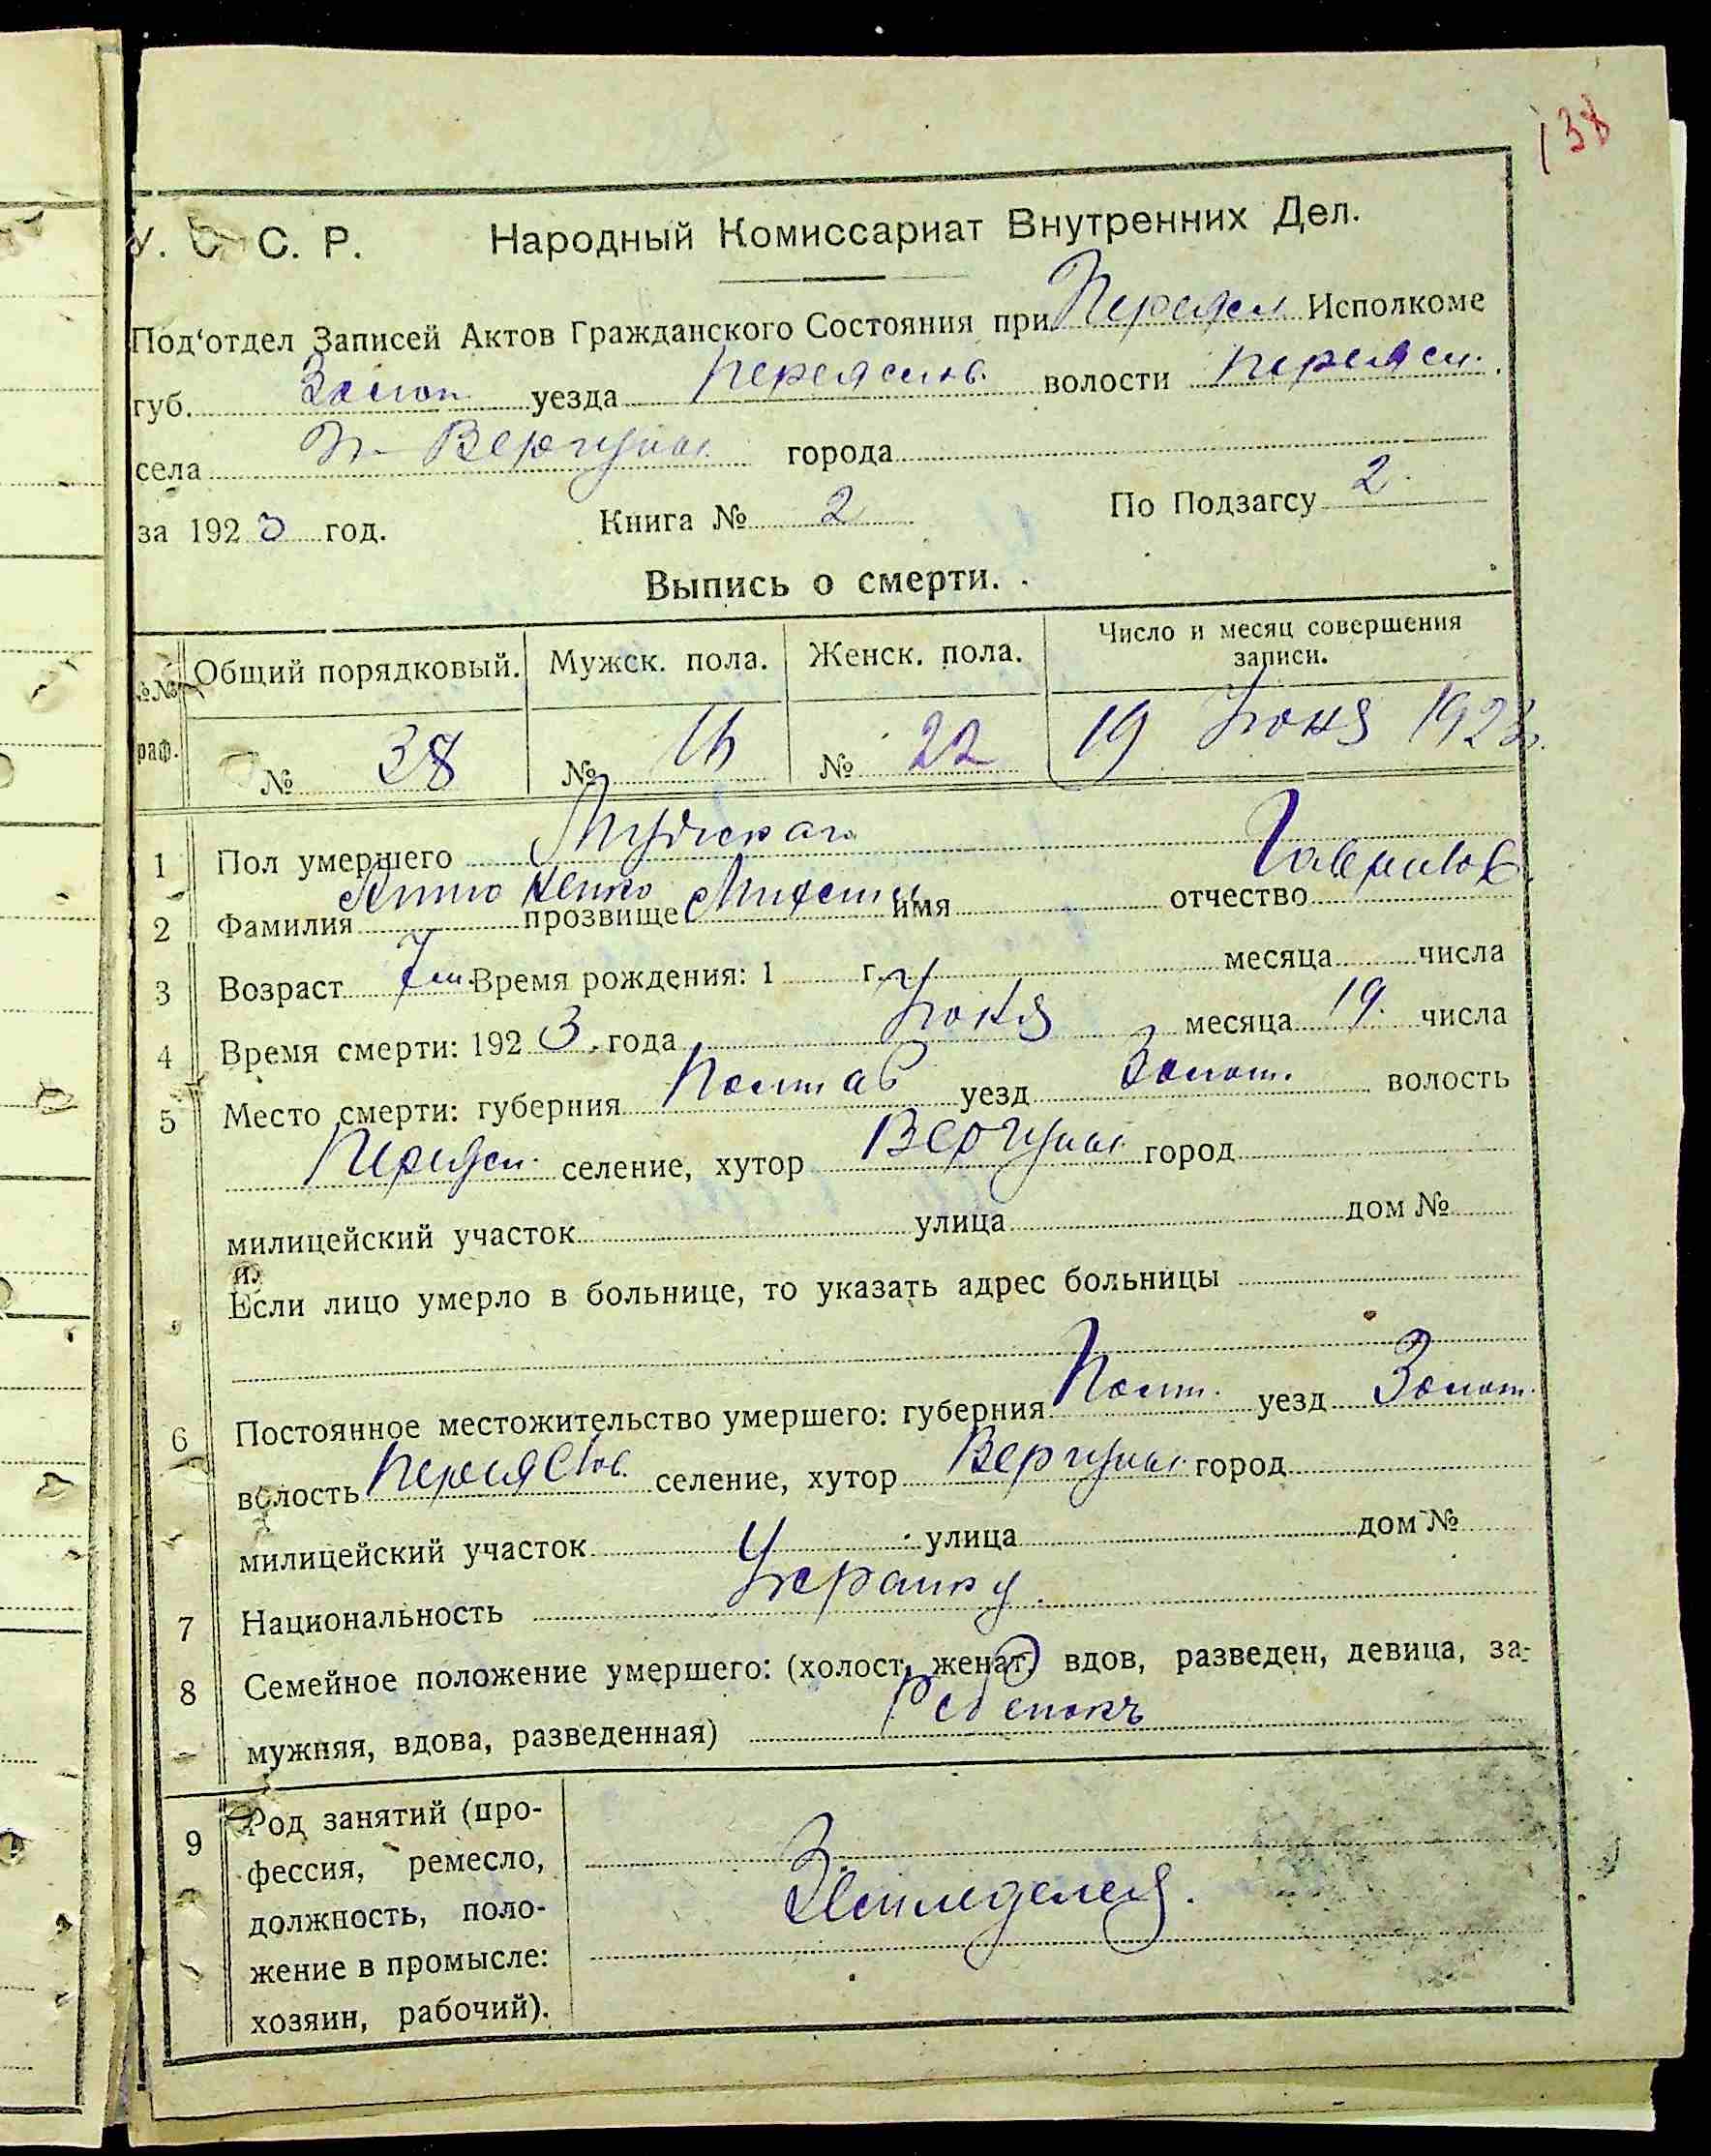 138
У. С. С. Р. Народный Комиссариат Внутренних Дел.
Под‘отдел Записей Актов Гражданского Состояния при Переясл Исполкоме
губ. Золот уезда Переяслов. волости Переясл.
села Вергуны города
за 1923 год. Книга № 2 По Подзагсу 2.
Выпись о смерти.
№№ граф. Общий порядковый. Мужск. пола. Женск. пола. Число и месяц совершения записи.
№ 38 № 16 № 22 19 Июня 1923
1 Пол умершего Мужского
2 Фамилия прозвище имя отчество Гаврилов.
3 Возраст 7 Время рождения: 1 г. месяца числа
4 Время смерти: 1923 года Июня месяца 19. числа
5 Место смерти: губерния Полтав уезд Золот. волость
Переясл. селение, хутор Вергуны город
милицейский участок улица дом №
Если лицо умерло в больнице, то указать адрес больницы
6 Постоянное местожительство умершего: губерния Полт. уезд Золот.
волость Переяслов. селение, хутор Вергуны город
милицейский участок улица дом №
7 Национальность
8 Семейное положение умершего: (холост, женат, вдов, разведен, девица, за-
мужняя, вдова, разведенная) Ребенокъ
9 Род занятий (про-
фессия, ремесло,
должность, поло-
жение в промысле:
хозяин, рабочий).